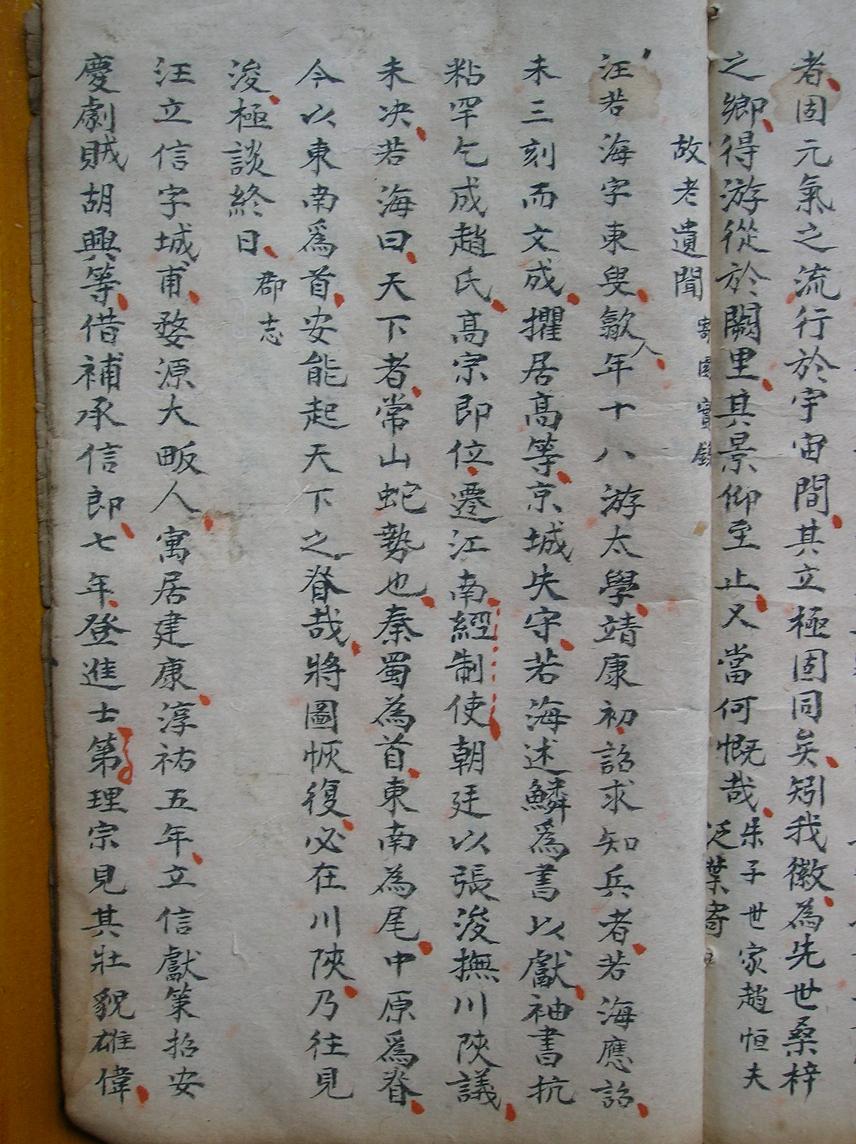 者固元氣之流行於宇宙間其立極固同矣矧我徽為先世桑梓
之鄉得游從於闕里其景仰至止又當何慨哉朱子世家趙恒夫
泛葉寄
故老遺聞 寄園
汪若海字東叟歙人年十八游太學靖康初詔求知兵者若海應詔
未三刻而文成擢居高等京城失守若海述鱗爲書以獻袖書抗
粘罕乞成趙氏高宗即位遷江南經制使朝廷以張浚撫川陝議
未决若海曰天下者常山蛇勢也秦蜀為首東南為尾中原爲脊
今以東南爲首安能起天下之脊哉將圖恢復必在川陝乃往見
浚極談終日 郡志
汪立信字城甫婺源大畈人寓居建康淳祐五年立信獻策招安
慶劇賊胡興等借補承信郎七年登進士第理宗見其壯貌雄偉